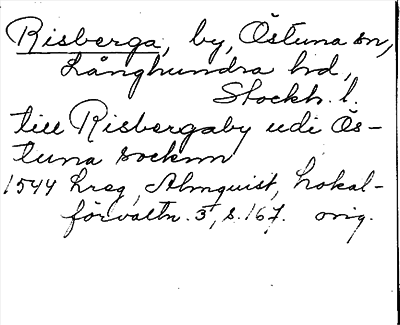 Risberga, by, Östuna sn,
Långhundra hd,
Stockh. l.
till Risbergaby udi Ös-
tuna socknn
1544 hreg, Almquist, Lokal-
förvaltn. 3, s. 167. orig.